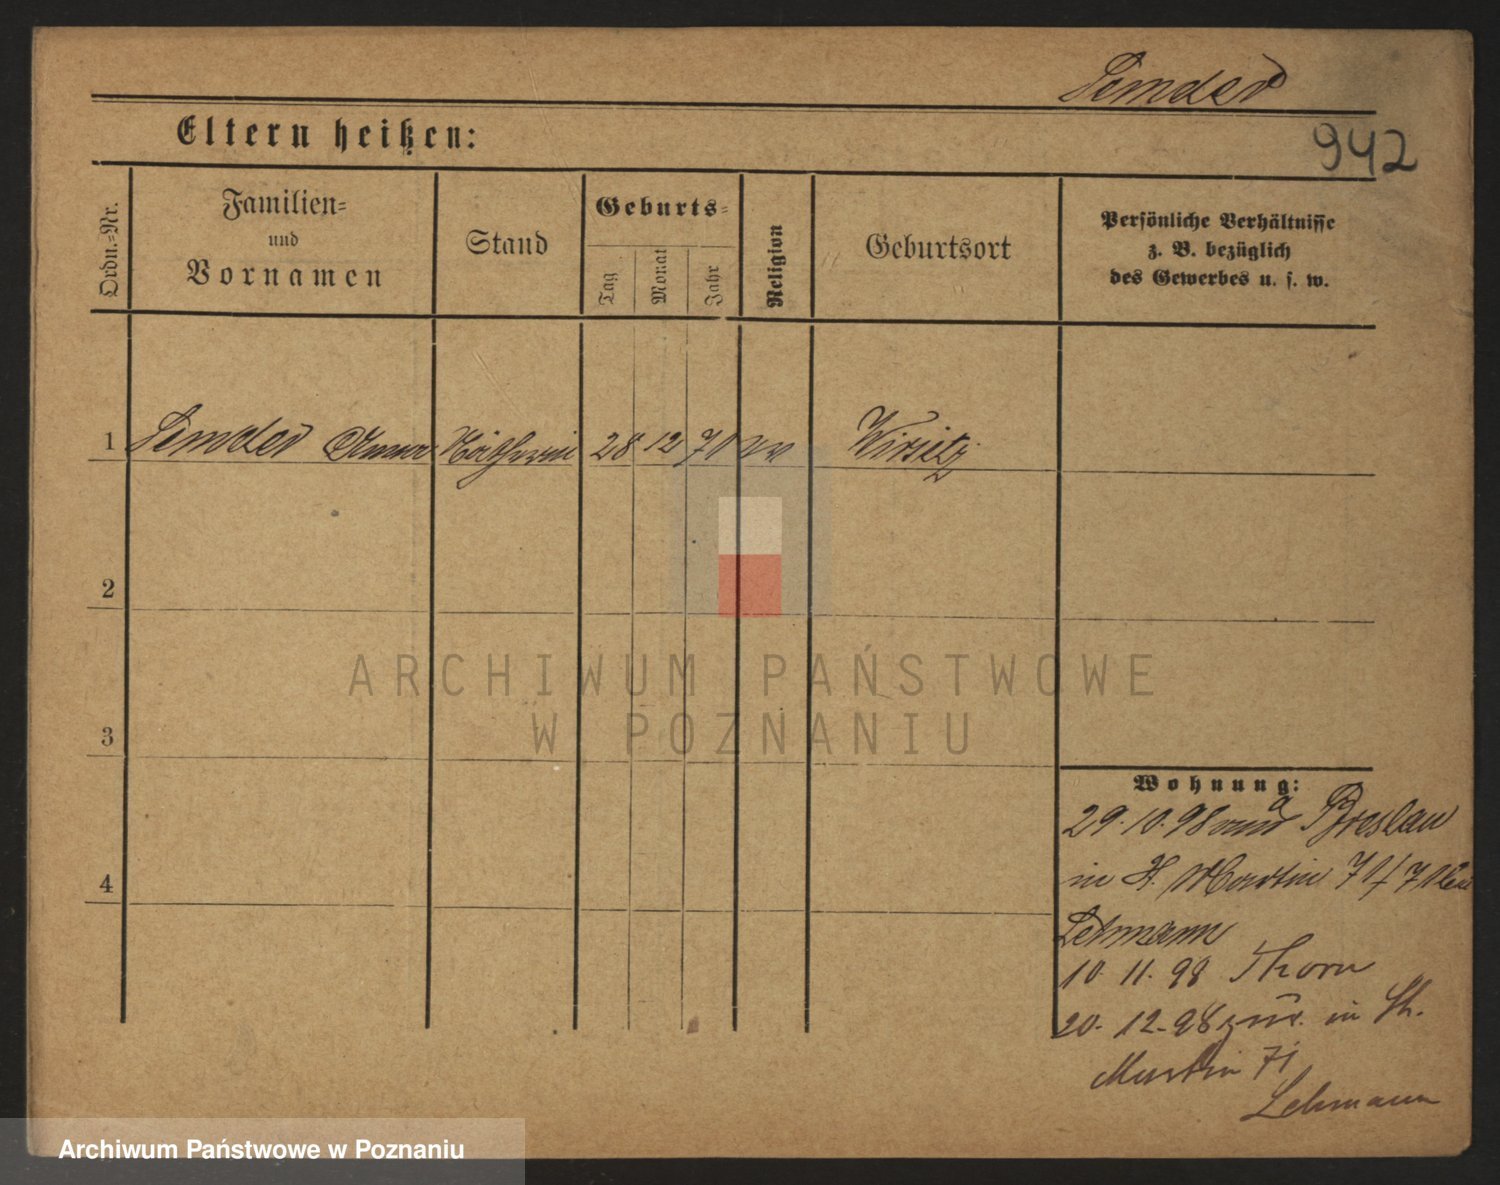 Semder
942
Eltern heißen:
Ordn.-Nr.
Familien-
und
Vornamen
Stand
Geburts-
Tag
Monat
Jahr
Religion
Geburtsort
Persönliche Verhältnisse
z. B. bezüglich
des Gewerbes u. s. w.
1 Semder Anna Näitherin 28 12 70 Wirsitz
2
3
4
Wohnung:
29.10.98 Breslau
in St. Martin 70/71 bei
Lehmann
10 11. 98 Thorn
20. 12. 98 zur. in St.
Martin 71
Lehmann
ARCHIWUM PAŃSTWOWE
W POZNANIU
Archiwum Państwowe w Poznaniu